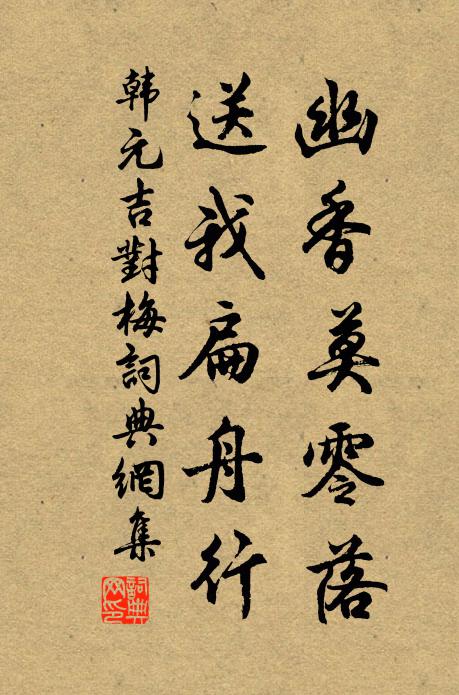 幽香莫零落
送我扁舟行
韩元吉對梅詞典網集
詞典网印